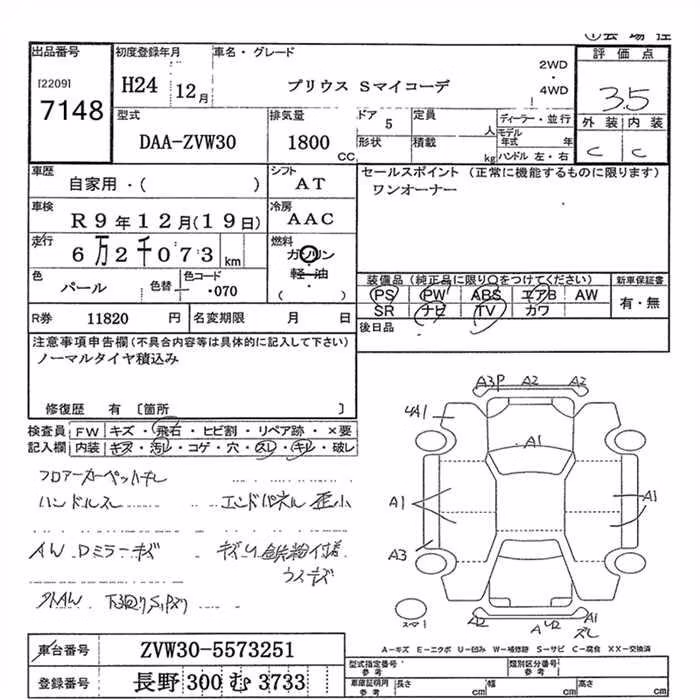 出品番号
[2209]
7148
初度登録年月
H24 12月
車名・グレード
プリウス Sマイコーデ
2WD
・
4WD
評価点
3.5
外装 内装
C C
型式
DAA-ZVW30
排気量
1800 CC
ドア 5
形状
定員 人
積載 kg
ディーラー・並行
モデル年式 年
ハンドル 左・右
車歴
自家用・( )
シフト
AT
車検
R9年12月(19日)
冷房
AAC
走行
6万2千073 km
燃料
ガソリン
軽油
( )
色
パール
色替
色コード
・070
セールスポイント (正常に機能するものに限ります)
ワンオーナー
装備品 (純正品に限り○をつけてください)
PS PW ABS エアB AW
SR ナビ TV カワ
新車保証書
有・無
後日品
R券 11820 円
名変期限 月 日
注意事項申告欄(不具合内容等は具体的に記入して下さい)
ノーマルタイヤ積込み
修復歴 有 〔箇所 〕
検査員記入欄
FW キズ・飛石・ヒビ割・リペア跡・×要
内装 キズ・汚レ・コゲ・穴・スレ・キレ・破レ
フロアーカーペットキレ
ハンドルスレ
エンドパネル歪小
AW Dミラーキズ
A3P A2 A2
4A1
A1
A1
A1
A3
A1
スレ
A-キズ E-エクボ U-凹み W-補修跡 S-サビ C-腐食 XX-交換済
車台番号
ZVW30-5573251
登録番号
長野 300 む 3733
型式指定番号
参考
類別区分番号
参考
車庫証明用
参考
長さ cm
幅 cm
高さ cm